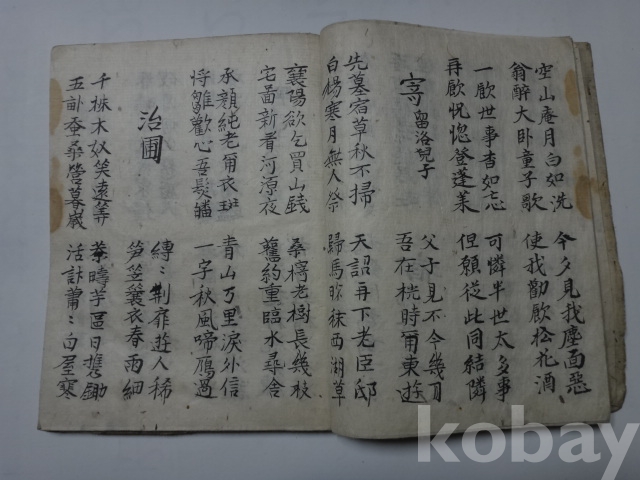 空山庵月白如洗 今夕見我塵面惡
翁醉大卧童子歌 使我勸飮松花酒
一飮世事杳如忘 可憐半世太多事
再飮怳惚登蓬萊 但願從此同結隣
寄留洛兒子 父子見不今幾月
吾在桃時爾東遊
先墓宿草秋不掃 天詔再下老臣邸
白楊寒月無人祭 歸馬秣西湖草
襄陽欲乞買山錢 桑檸老樹長幾枝
宅畵新看河源夜 舊約重臨水尋舍
承顔純老爾衣班 青山万里淚外信
將雛歡心吾髮皤 一字秋風啼鴈過
治圃 縛〻荆扉遊人稀
笋笠蓑衣春雨細
千株木奴笑遠筭 疇芋區日携鋤
五畒蚕桑營暮歲 活計蕭〻白屋寒
kobay